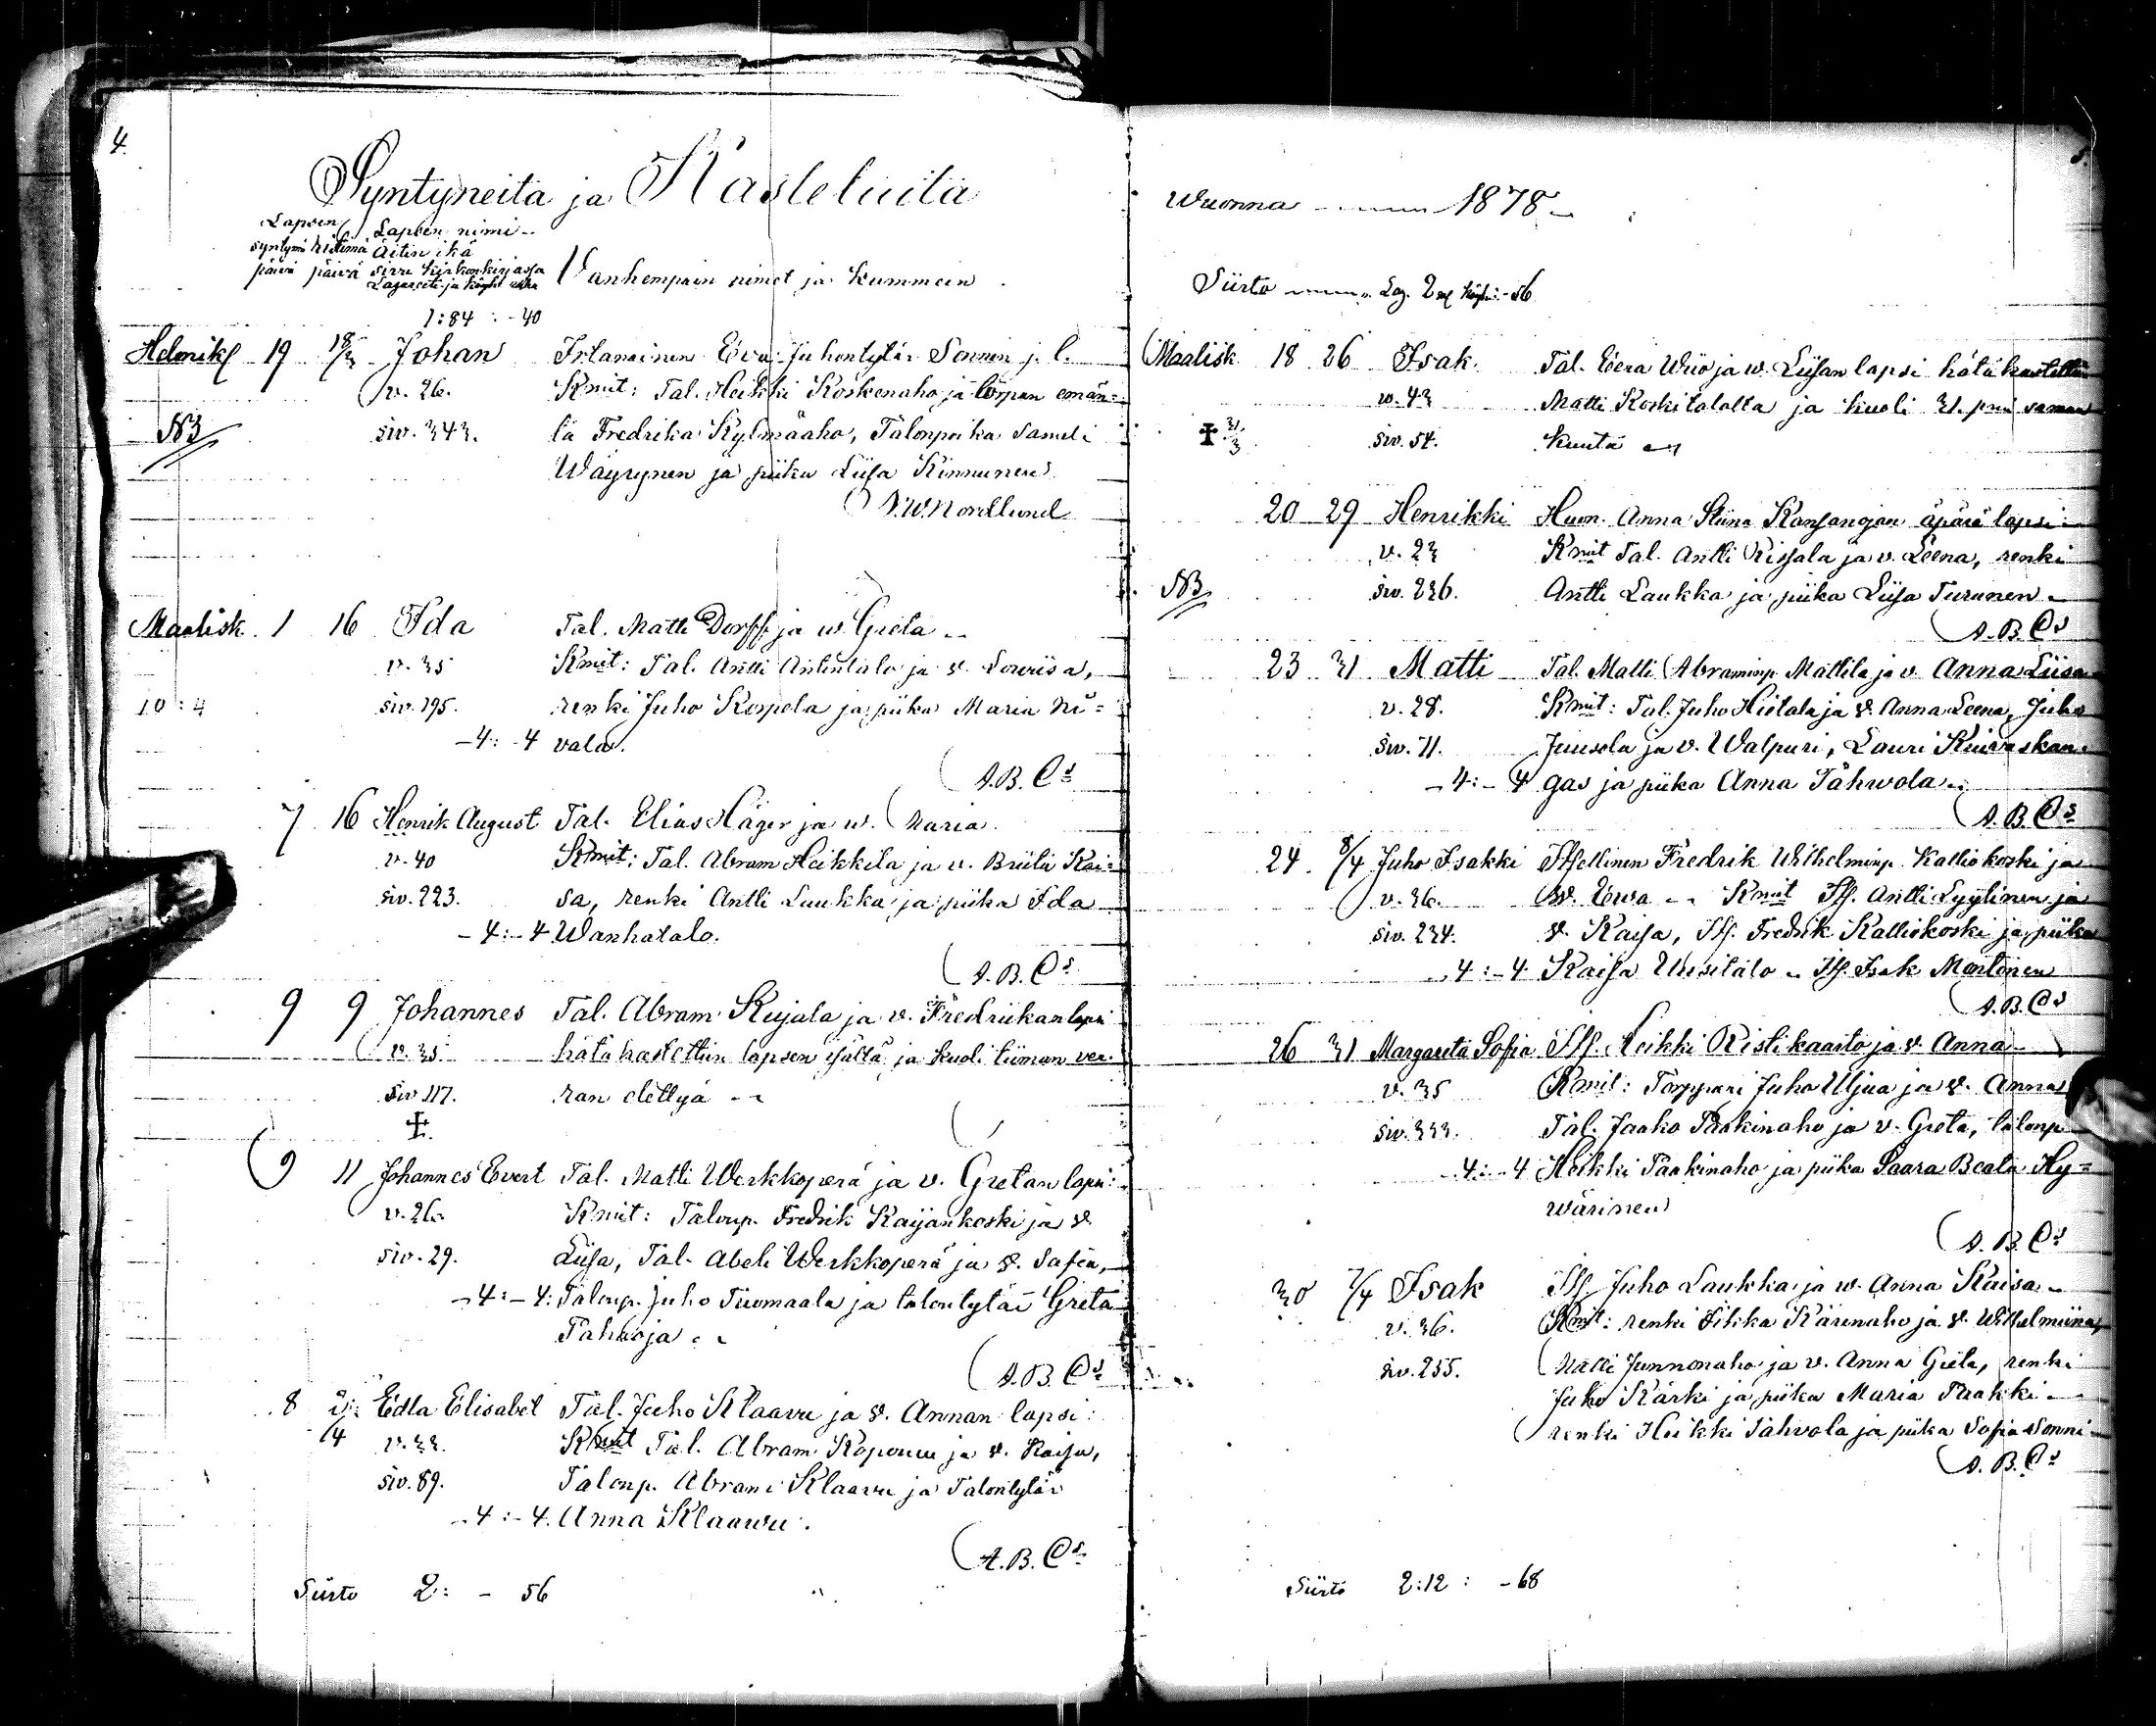 4.
Syntyneitä ja Kasteluita
Lapsen Lapsen nimi
syntymä ristimä Äitin ikä
päivä päivä sivu kirkonkirjassa
Vanhempain nimet ja kummein
1:84 : -40
Helmik 19 18/3 Johan Itsenäinen Eeva Juhontytär Sonnin j. l.
v. 26. Kmit: Tal. Heikki Koskenaho ja törpan emän=
NB siv. 343. tä Fredrika Kylmäaho, Talonpoika Sameli
Wäyrynen ja piika Liisa Kinnunen
N.W. Nordlund
Maalisk. 1 16 Ida Tal. Matti Dorff ja w. Greta
v. 35 Kmit: Tal. Antti Anttitalo ja v. Lowiisa,
10:4 siv. 195. renki Juho Korpela ja piika Maria Ni=
-4:-4 vala.
A.B. Cs
7 16 Henrik August Tal. Elias Häger ja w. Maria
v. 40 Kmit: Tal. Abram Heikkilä ja v. Briita Kai=
siv. 223. sa, renki Antti Luukka ja piika Ida
-4:-4 Wanhatalo.
A.B. Cs
9 9 Johannes Tal. Abram Kujala ja v. Fredriikan lapsi
v. 35 hätäkastettiin lapsen isältä ja kuoli tiiman ver-
siv 117. ran elettyä
9 11 Johannes Evert Tal. Matti Werkkoperä ja v. Gretan lapsi:
v. 26. Kmit: Talonp. Fredrik Kaijankoski ja v.
siv. 29. Liisa, Tal. Abeli Werkkoperä ja v. Sofia,
-4:-4: Talonp. Juho Tuomaala ja talontytär Greta
Pahkoja
A.B. Cs
8 2/4 Edla Elisabet Tal. Juho Klaavu ja v. Annan lapsi:
v. 33. Kmit Tal. Abram Koponen ja v. Kaisa,
siv. 89. Talonp. Abram Klaavu ja Talontytär
-4:-4. Anna Klaawu.
A.B. Cs
Siirto 2: - 56
5.
Wuonna 1878
Siirto 2 56
Maalisk 18 26 Isak. Tal. Eera Wüo ja w. Liisan lapsi hätäkastettu
v. 43 Matti Koskitalolta ja kuoli 31. pnä saman
31/3 siv. 54. kuuta
20 29 Henrikki Huon. Anna Stiina Kansanojan äpärä lapsi
v. 23 Kmit Tal. Antti Rissala ja v. Leena, renki
NB siv. 236. Antti Laukka ja piika Liisa Turunen
A.B. Cs
23 31 Matti Tal. Matti Abraminp. Mattila ja v. Anna Liisa
v. 28. Kmit: Tal. Juho Hietala ja v. Anna Leena, Juho
siv. 71. Juusola ja v. Walpuri, Lauri Kuivaskan=
-4:-4 gas ja piika Anna Tahwola
A.B. Cs
24 8/4 Juho Isakki Itsellinen Fredrik Wilhelminp. Kalliokoski ja
v. 36. w. Ewa Kmit Its. Antti Lyytinen ja
siv. 234. v. Kaisa, Its. Fredrik Kalliokoski ja piika
-4:-4 Kaisa Uusitalo Its. Isak Mertonen
A.B. Cs
26 31 Margareta Sofia Its. Heikki Ristikaarto ja v. Anna
v. 35 Kmit: Torppari Juho Uljua ja v. Anna
siv. 333. Tal. Jaako Paakinaho ja v. Greta, talonp
-4:-4 Heikki Paakinaho ja piika Saara Beata Hy=
wärinen
A.B. Cs
30 7/4 Isak Its. Juho Laukka ja w. Anna Kaisa
v. 36. Kmit: renki Pikka Kärenaho ja v. Wilhelmiina,
siv. 255. Matti Junnonaho ja v. Anna Greta, renki
Juho Kärki ja piika Maria Paakki
renki Heikki Tahvola ja piika Sofia Sonni
A.B. Cs
Siirto 2:12 : -68